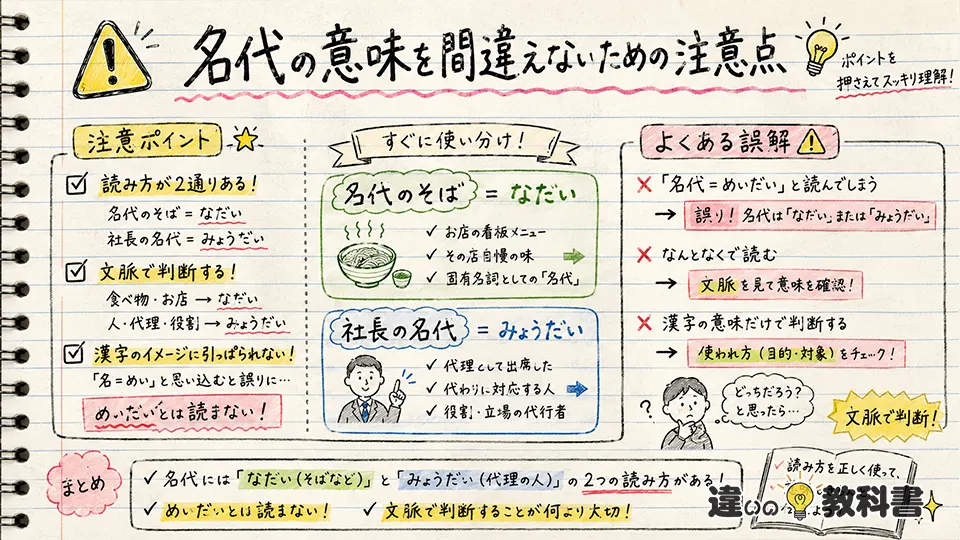 名代の意味を間違えないための注意点
ポイントを
押さえてスッキリ理解!
注意ポイント
読み方が2通りある!
名代のそば = なだい
社長の名代 = みょうだい
文脈で判断する!
食べ物・お店 → なだい
人・代理・役割 → みょうだい
漢字のイメージに引っぱられない!
「名=めい」と思い込むと誤りに…
めいだいとは読まない!
すぐに使い分け!
名代のそば = なだい
✓ お店の看板メニュー
✓ その店自慢の味
✓ 固有名詞としての「名代」
社長の名代 = みょうだい
✓ 代理として出席した
✓ 代わりに対応する人
✓ 役割・立場の代行者
よくある誤解
✕ 「名代=めいだい」と読んでしまう
→ 誤り! 名代は「なだい」または「みょうだい」
✕ なんとなくで読む
→ 文脈を見て意味を確認!
✕ 漢字の意味だけで判断する
→ 使われ方(目的・対象)をチェック!
?
どっちだろう?
と思ったら…
文脈で判断!
まとめ
✓ 名代には「なだい(そばなど)」と「みょうだい(代理の人)」の2つの読み方がある!
✓ めいだいとは読まない!
✓ 文脈で判断することが何より大切!
✓ 読み方を正しく使って、
違いの教科書